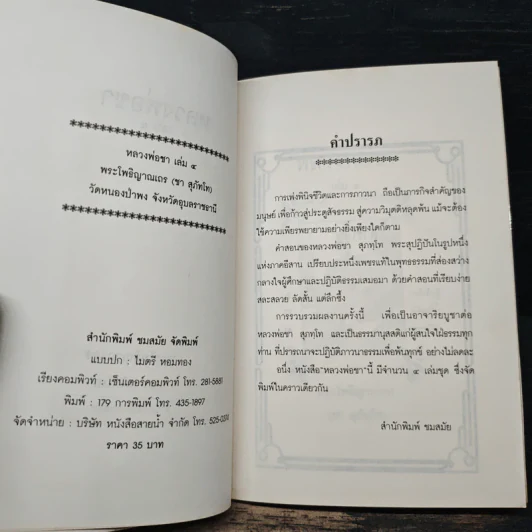 หลวงพ่อชา เล่ม ๔
พระโพธิญาณเถร (ชา สุภัทโท)
วัดหนองป่าพง จังหวัดอุบลราชธานี
สำนักพิมพ์ ชมสมัย จัดพิมพ์
แบบปก : ไมตรี หอมทอง
เรียงคอมพิวท์ : เซ็นเตอร์คอมพิวท์ โทร. 281-5681
พิมพ์ : 179 การพิมพ์ โทร. 435-1897
จัดจำหน่าย : บริษัท หนังสือสายน้ำ จำกัด โทร. 525-0374
ราคา 35 บาท
คำปรารภ
การเพ่งพินิจชีวิตและการภาวนา ถือเป็นภารกิจสำคัญของ
มนุษย์ เพื่อก้าวสู่ประตูสัจธรรม สู่ความวิมุตติหลุดพ้น แม้จะต้อง
ใช้ความเพียรพยายามอย่างยิ่งเพียงใดก็ตาม
คำสอนของหลวงพ่อชา สุภทฺโท พระสุปฏิปันโนรูปหนึ่ง
แห่งภาคอีสาน เปรียบประหนึ่งเพชรแท้ในพุทธธรรมที่ส่องสว่าง
กลางใจผู้ศึกษาและปฏิบัติธรรมเสมอมา ด้วยคำสอนที่เรียบง่าย
สละสลวย ลัดสั้น แต่ลึกซึ้ง
การรวบรวมผลงานครั้งนี้ เพื่อเป็นอาจาริยบูชาต่อ
หลวงพ่อชา สุภทฺโท และเป็นธรรมานุสสติแก่ผู้สนใจใฝ่ธรรมทุก
ท่าน ที่ปรารถนาจะปฏิบัติภาวนาธรรมเพื่อพ้นทุกข์ อย่างไม่ลดละ
อนึ่ง หนังสือ"หลวงพ่อชา"นี้ มีจำนวน ๔ เล่มชุด ซึ่งจัด
พิมพ์ในคราวเดียวกัน
สำนักพิมพ์ ชมสมัย